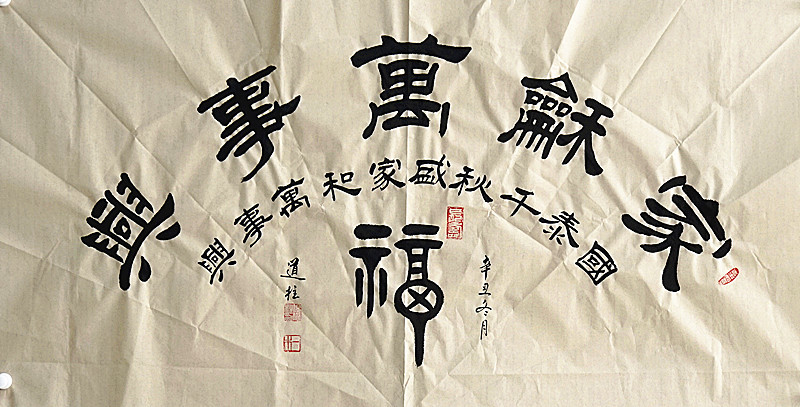 家龢萬事興
國泰千秋盛家和萬事興
福
辛丑冬月
道柱